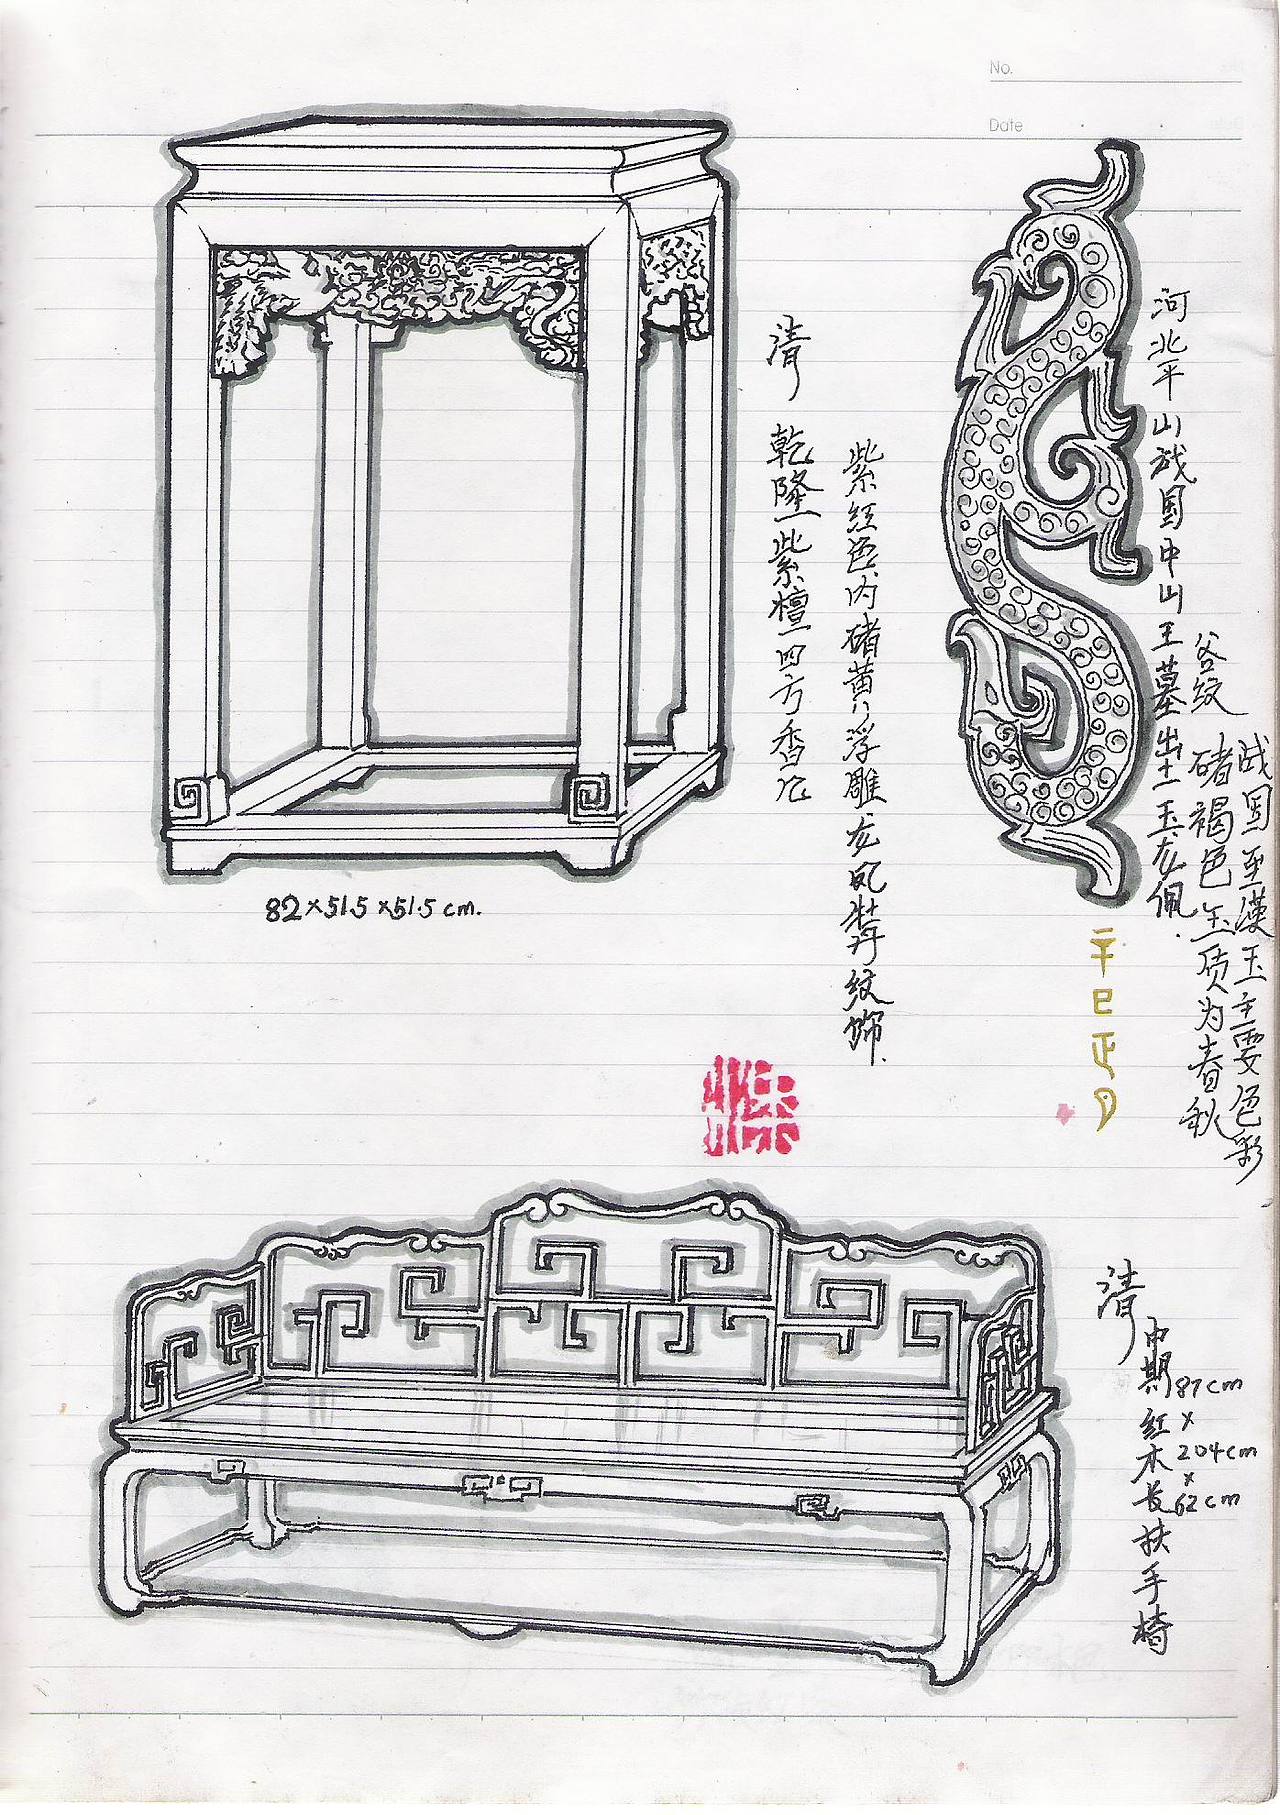 No.
Date
河北平山战国中山王墓出土玉龙佩.
谷纹
战国至汉玉主要色彩
褐色玉质为春秋
辛巳正月
清 乾隆 紫檀四方香几
紫红色内 黄 浮雕龙凤牡丹纹饰.
82×51.5×51.5 cm.
清 中期红木长扶手椅
87cm
×
204cm
×
62cm